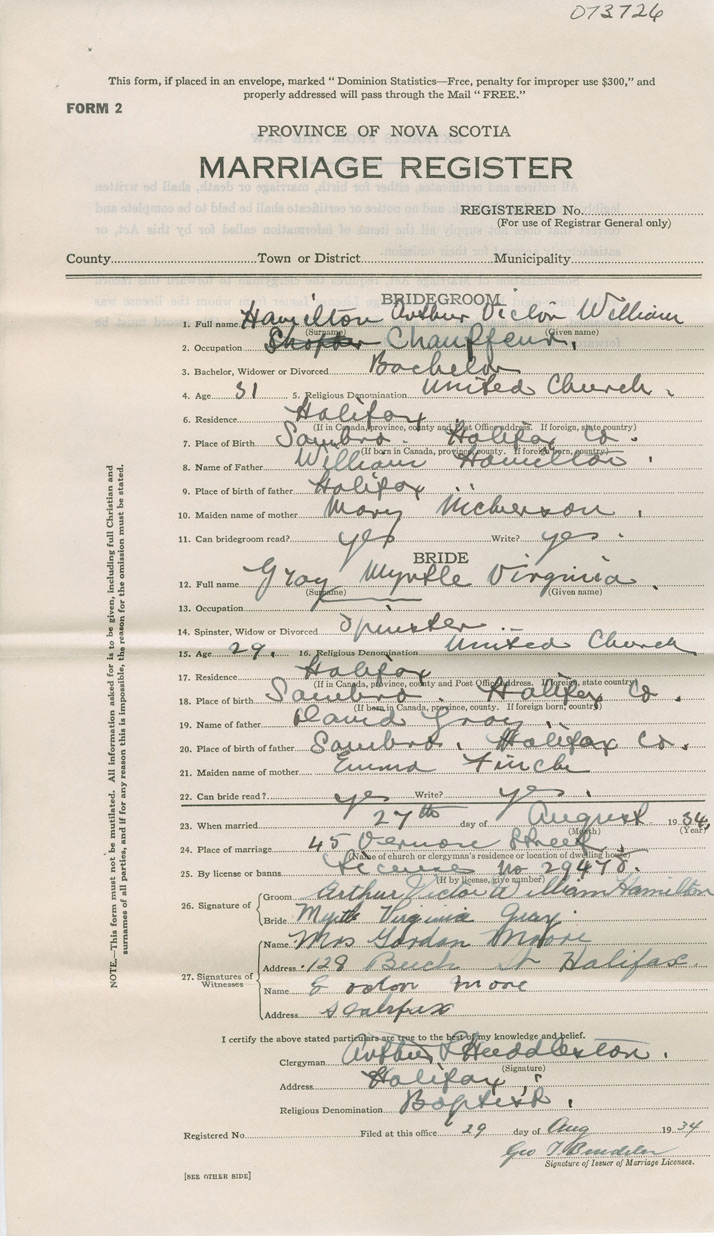 073726
This form, if placed in an envelope, marked "Dominion Statistics—Free, penalty for improper use $300," and
properly addressed will pass through the Mail "FREE."
FORM 2
PROVINCE OF NOVA SCOTIA
MARRIAGE REGISTER
REGISTERED No.
(For use of Registrar General only)
County Town or District Municipality
BRIDEGROOM
1. Full name Hamilton Arthur Victor William
(Surname) (Given name)
2. Occupation Chauffeur.
3. Bachelor, Widower or Divorced Bachelor
4. Age 31 5. Religious Denomination United Church.
6. Residence Halifax
(If in Canada, province, county and Post Office address. If foreign, state country)
7. Place of Birth Sambro. Halifax Co.
(If born in Canada, province, county. If foreign born, country)
8. Name of Father William Hamilton
9. Place of birth of father Halifax
10. Maiden name of mother Mary Nickerson
11. Can bridegroom read? yes Write? yes.
BRIDE
12. Full name Gray Myrtle Virginia
(Surname) (Given name)
13. Occupation
14. Spinster, Widow or Divorced Spinster
15. Age 29. 16. Religious Denomination United Church
17. Residence Halifax
(If in Canada, province, county and Post Office Address. If foreign, state country)
18. Place of birth Sambro. Halifax Co.
(If born in Canada, province, county. If foreign born, country)
19. Name of father David Gray
20. Place of birth of father Sambro. Halifax Co.
21. Maiden name of mother Emma Finck
22. Can bride read? yes Write? yes.
23. When married 27th day of August 1934,
(Month) (Year)
24. Place of marriage 45 Vernon Street
(Name of church or clergyman's residence or location of dwelling house)
25. By license or banns License No 29478.
(If by license, give number)
26. Signature of
Groom Arthur Victor William Hamilton
Bride Myrtle Virginia Gray.
27. Signatures of Witnesses
Name Mrs Gordon Moore
Address 128 Beech St Halifax.
Name Moore
Address Halifax
I certify the above stated particulars are true to the best of my knowledge and belief.
Clergyman Arthur L Huddleston.
(Signature)
Address Halifax
Religious Denomination Baptist.
Registered No. Filed at this office 29 day of Aug 1934
Geo T.
Signature of Issuer of Marriage Licenses.
[SEE OTHER SIDE]
NOTE.—This form must not be mutilated. All information asked for is to be given, including full Christian and
surnames of all parties, and if for any reason this is impossible, the reason for the omission must be stated.